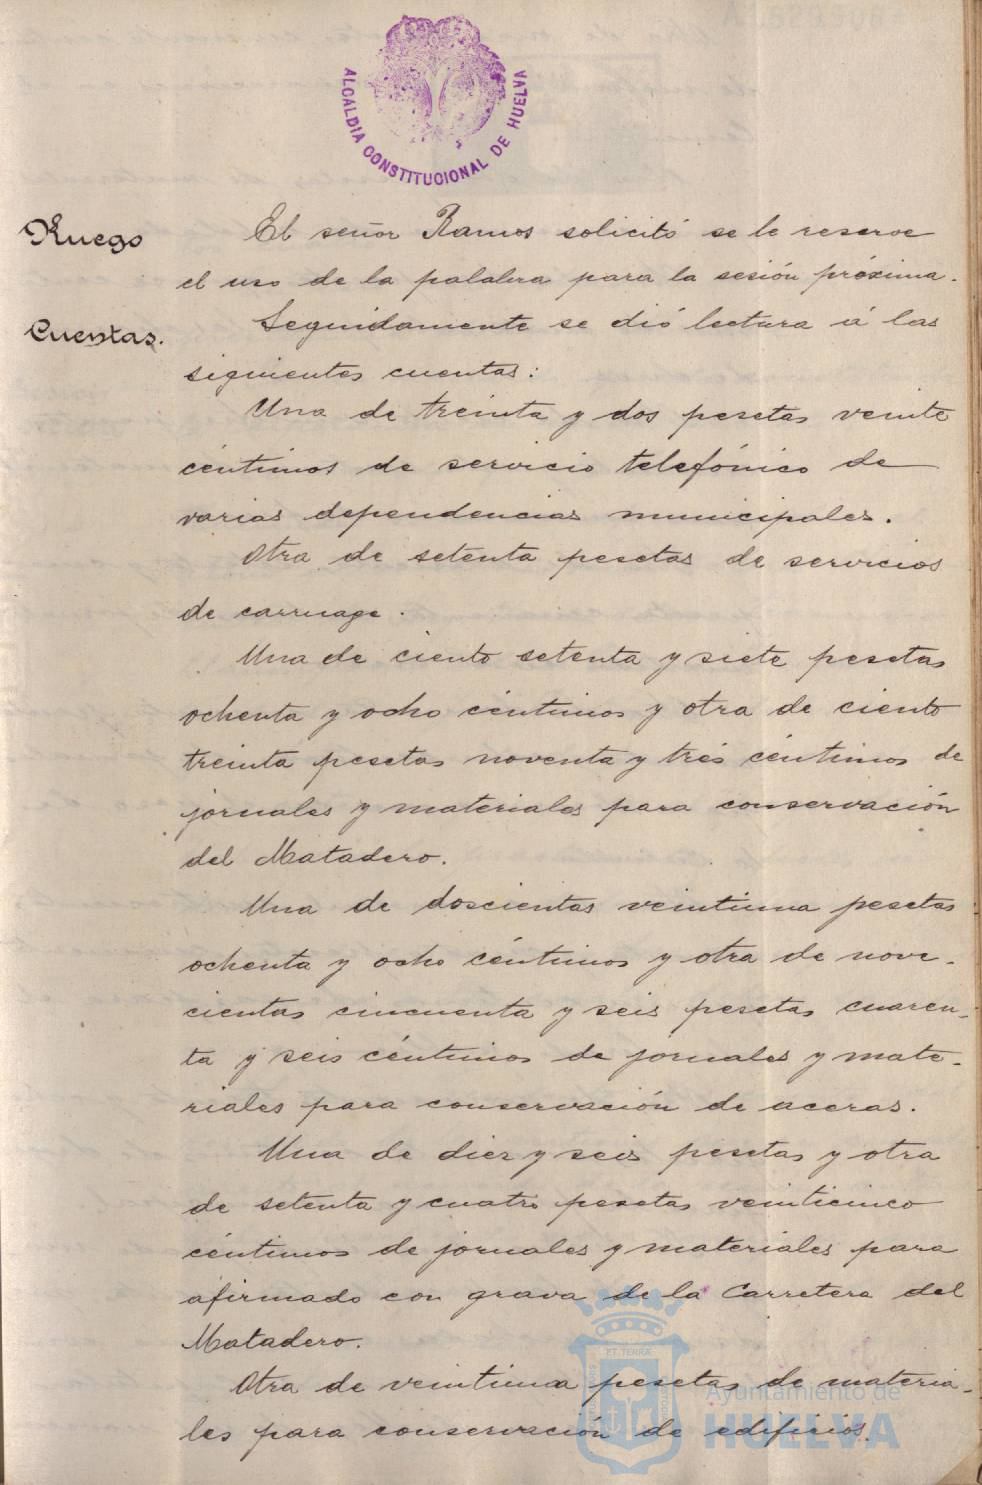 ALCALDIA CONSTITUCIONAL DE HUELVA
Ruego
El señor Ramos solicitó se le reserve
el uso de la palabra para la sesión próxima.
Cuentas.
Seguidamente se dió lectura á las
siguientes cuentas:
Una de treinta y dos pesetas veinte
céntimos de servicio telefónico de
varias dependencias municipales.
Otra de setenta pesetas de servicios
de carruage.
Una de ciento setenta y siete pesetas
ochenta y ocho céntimos y otra de ciento
treinta pesetas noventa y trés céntimos de
jornales y materiales para conservación
del Matadero.
Una de doscientas veintiuna pesetas
ochenta y ocho céntimos y otra de nove-
cientas cincuenta y seis pesetas cuaren-
ta y seis céntimos de jornales y mate-
riales para conservación de aceras.
Una de diez y seis pesetas y otra
de setenta y cuatro pesetas veinticinco
céntimos de jornales y materiales para
afirmado con grava de la Carretera del
Matadero.
Otra de veintiuna pesetas de materia-
les para conservación de edificios.
ET TERRA
Ayuntamiento de
HUELVA